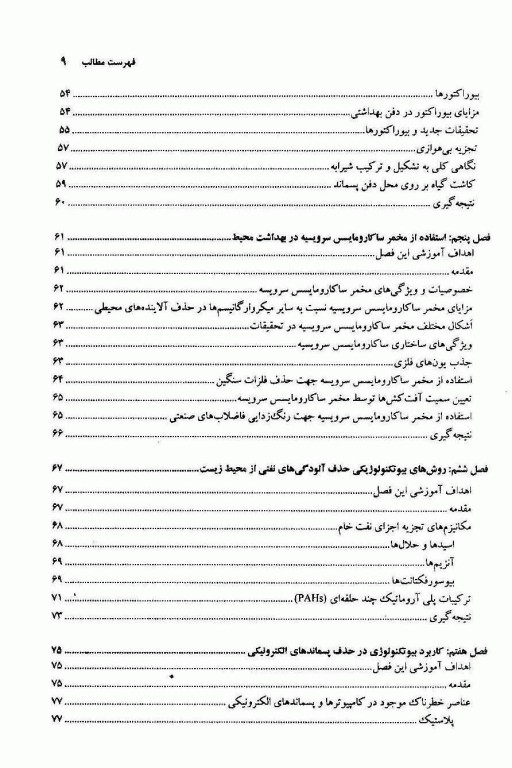 فهرست مطالب ۹
بیوراکتورها ۵۴
مزایای بیوراکتور در دفن بهداشتی ۵۴
تحقیقات جدید و بیوراکتورها ۵۵
تجزیه بی‌هوازی ۵۷
نگاهی کلی به تشکیل و ترکیب شیرابه ۵۷
کاشت گیاه بر روی محل دفن پسماند ۵۹
نتیجه‌گیری ۶۰
فصل پنجم: استفاده از مخمر ساکارومایسس سرویسیه در بهداشت محیط ۶۱
اهداف آموزشی این فصل ۶۱
مقدمه ۶۱
خصوصیات و ویژگی‌های مخمر ساکارومایسس سرویسه ۶۲
مزایای مخمر ساکارومایسس سرویسیه نسبت به سایر میکروارگانیسم‌ها در حذف آلاینده‌های محیطی ۶۲
اَشکال مختلف مخمر ساکارومایسس سرویسیه در تحقیقات ۶۳
ویژگی‌های ساختاری ساکارومایسس سرویسیه ۶۳
جذب یون‌های فلزی ۶۳
استفاده از مخمر ساکارومایسس سرویسه جهت حذف فلزات سنگین ۶۴
تعیین سمیت آفت‌کش‌ها توسط مخمر ساکارومایسس سرویسه ۶۵
استفاده از مخمر ساکارومایسس سرویسیه جهت رنگ‌زدایی فاضلاب‌های صنعتی ۶۵
نتیجه‌گیری ۶۶
فصل ششم: روش‌های بیوتکنولوژیکی حذف آلودگی‌های نفتی از محیط زیست ۶۷
اهداف آموزشی این فصل ۶۷
مقدمه ۶۷
مکانیزم‌های تجزیه اجزای نفت خام ۶۸
اسیدها و حلال‌ها ۶۸
آنزیم‌ها ۶۹
بیوسورفکتانت‌ها ۶۹
ترکیبات پلی آروماتیک چند حلقه‌ای (PAHs) ۷۱
نتیجه‌گیری ۷۳
فصل هفتم: کاربرد بیوتکنولوژی در حذف پسماندهای الکترونیکی ۷۵
اهداف آموزشی این فصل ۷۵
مقدمه ۷۵
عناصر خطرناک موجود در کامپیوترها و پسماندهای الکترونیکی ۷۷
پلاستیک ۷۷